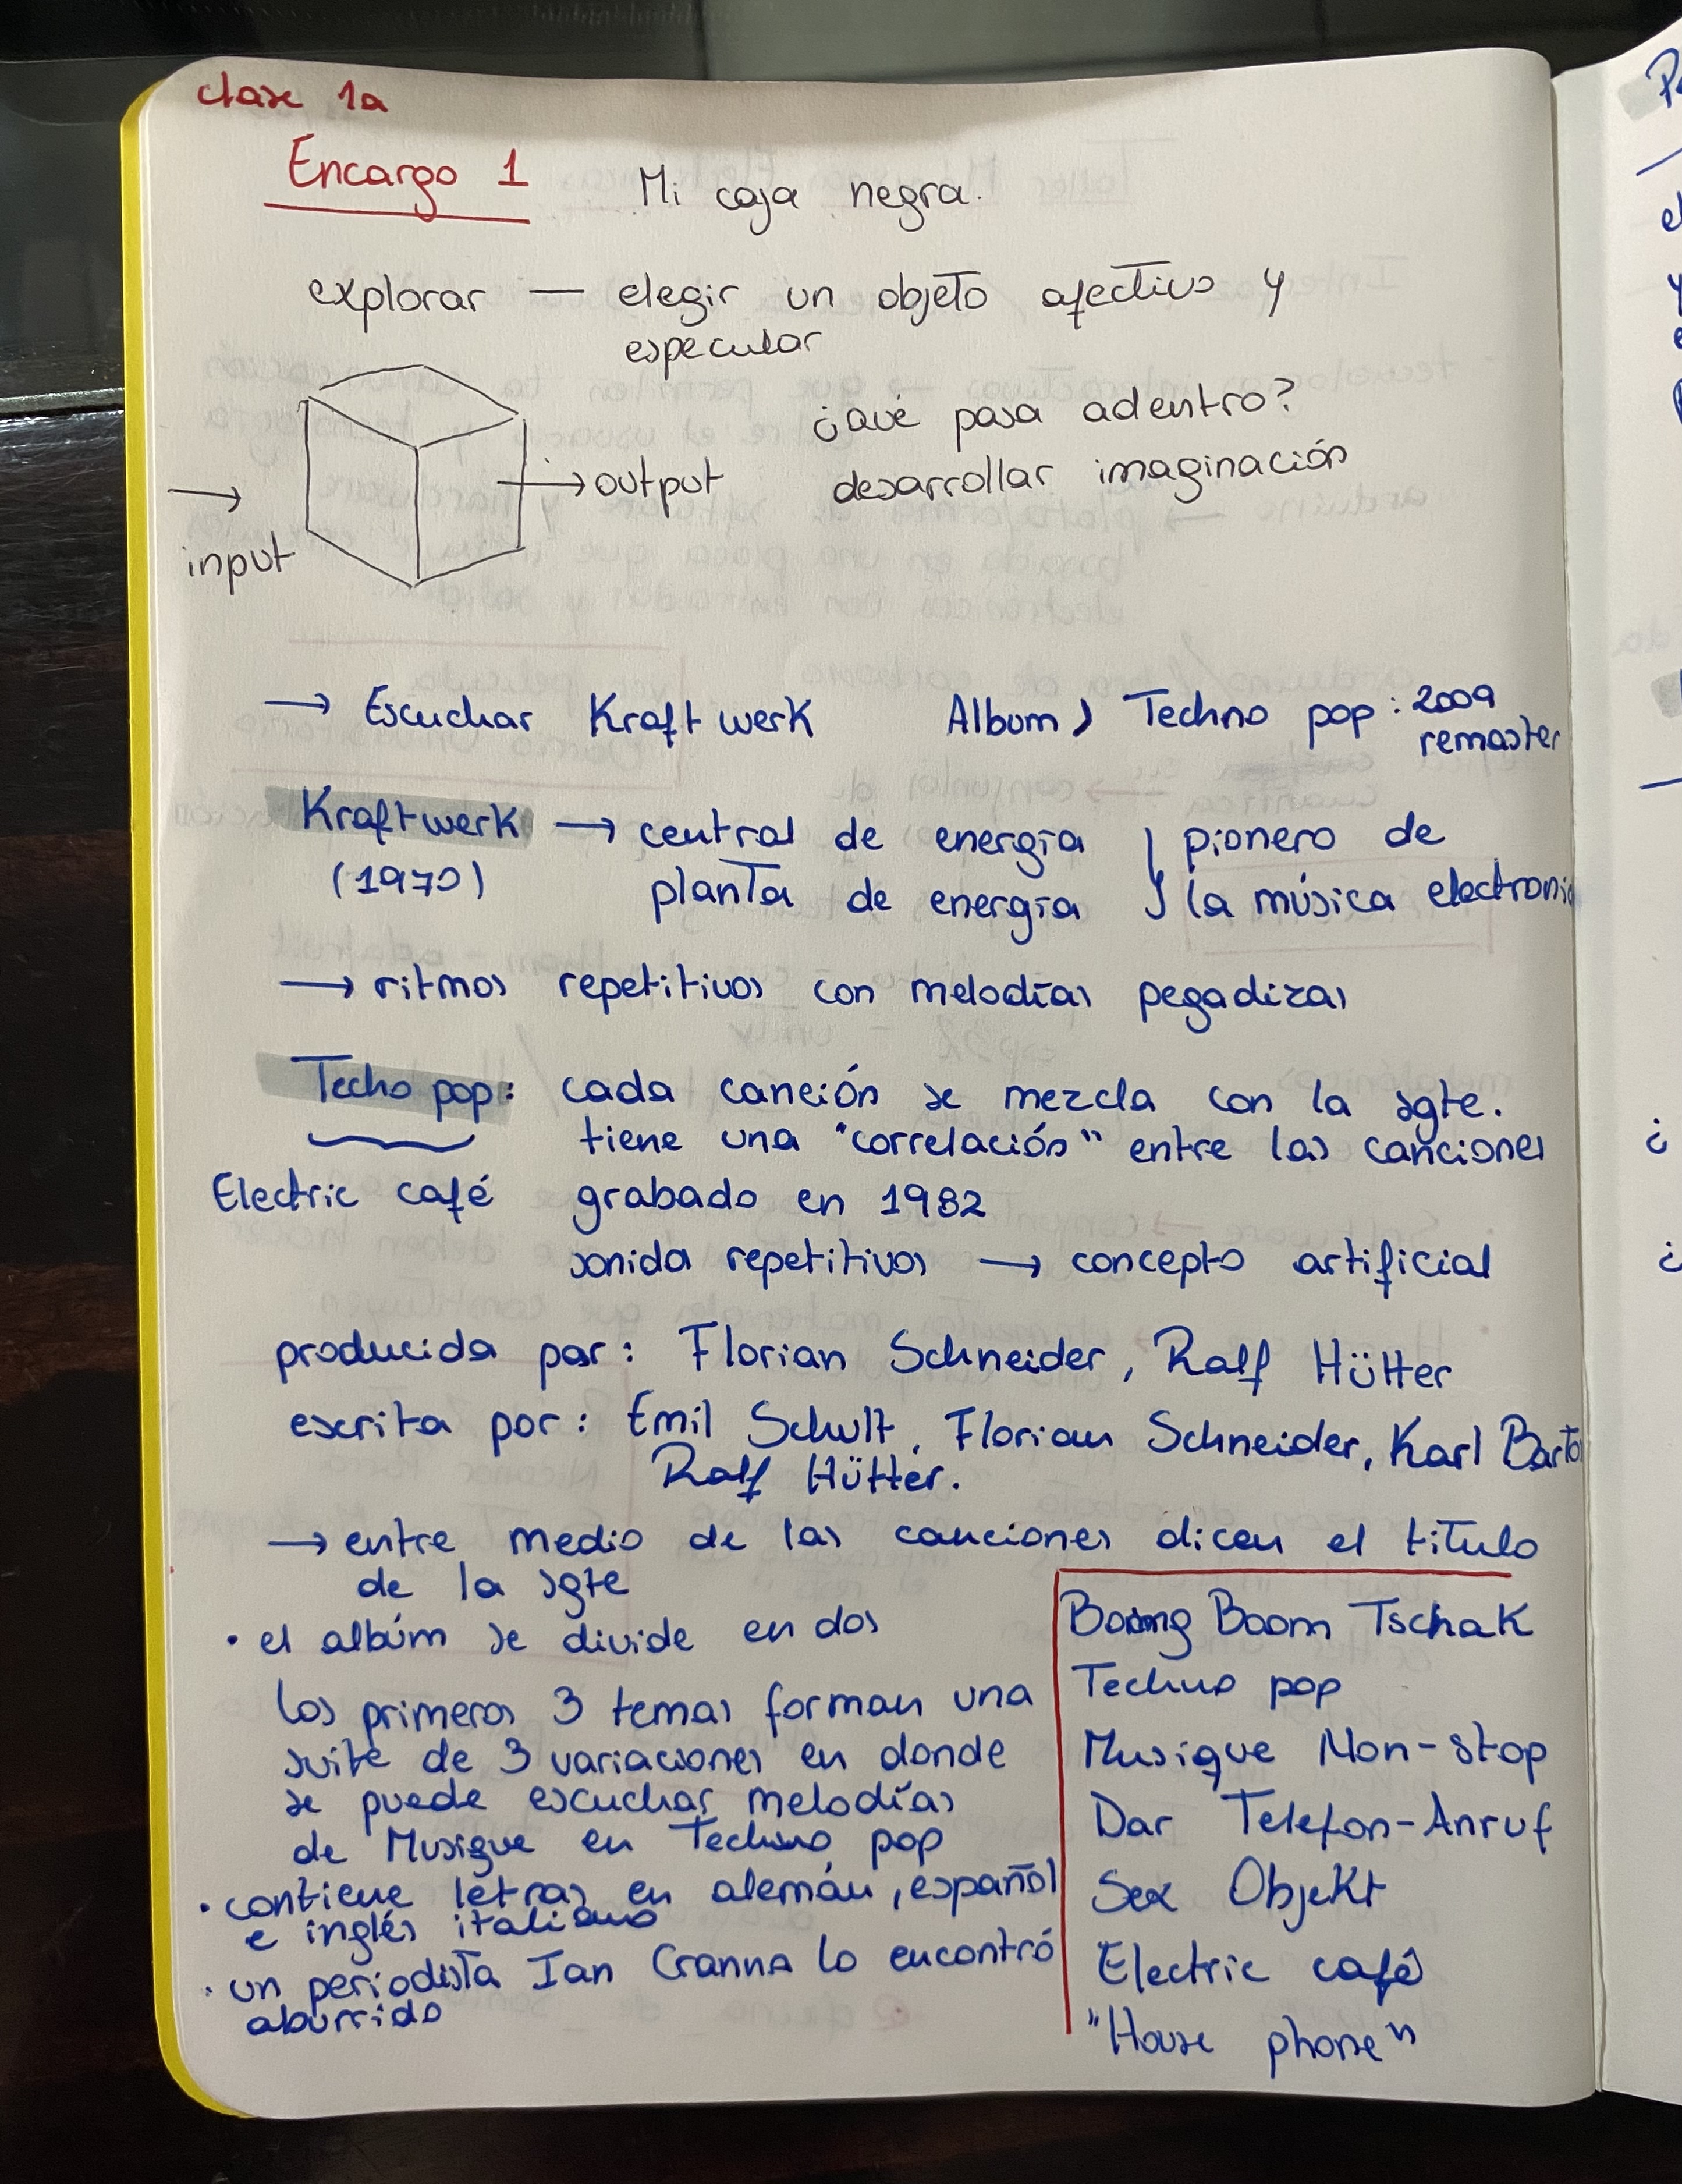 clase 1a
Encargo 1 Mi caja negra.
explorar — elegir un objeto afectivo y
especular
¿qué pasa adentro?
→ output desarrollar imaginación
→
input
→ Escuchar Kraftwerk Album) Techno pop: 2009
remaster
Kraftwerk → central de energía } pionero de
(1970) planta de energía la música electronic
→ ritmos repetitivos con melodías pegadizas
Techo pop: cada canción se mezcla con la sgte.
tiene una "correlación" entre las canciones
Electric café grabado en 1982
sonida repetitivos → concepto artificial
producida por: Florian Schneider, Ralf Hütter
escrita por: Emil Schult, Florian Schneider, Karl Barto
Ralf Hütter.
→ entre medio de las canciones dicen el titulo
de la sgte
• el albúm se divide en dos
Los primeros 3 temas forman una
suite de 3 variaciones en donde
se puede escuchar melodías
de Musique en Techno pop
• contiene letras en alemán, español
e inglés italiano
• un periodista Ian Cranna lo encontró
aburrido
Boing Boom Tschak
Techno pop
Musique Non-stop
Dar Telefon-Anruf
Sex Objekt
Electric café
"House phone"